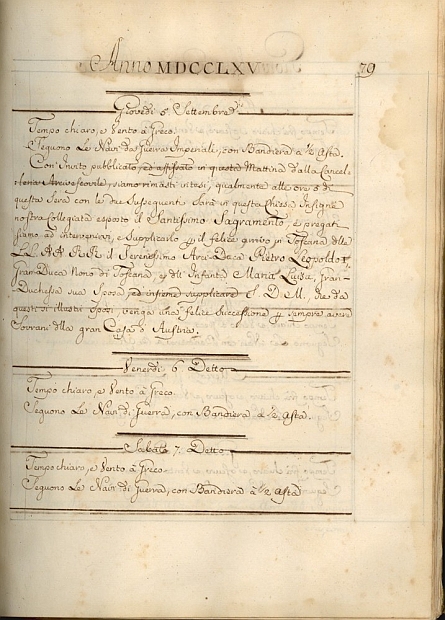 Anno MDCCLXV
79
Giovedi 5. Settembre
Tempo chiaro, e Vento à Greco.
Seguono Le Navi da Guerra Imperiali, con Bandiera à ½ Asta.
Con Invito pubblicato, ed affissato in questa Mattina dalla Cancel-
leria Arcivescovile, siamo rimasti intesi, qualmente alle ore 6 di
questa Sera con le due Susseguenti Sarà in questa Chiesa Insigne
nostra Collegiata esposto il Santissimo Sagramento, e pregati
siamo ad intervenirvi, e Supplicarlo il felice arrivo in Toscana delle
LL. AA. RR. il Serenissimo Arci-Duca Pietro Leopoldo I.
Gran-Duca Nono di Toscana, e dell' Infanta Maria Luisa, Gran-
Duchessa sua Sposa, ed insieme supplicare S. D. M. che da
questi di illustri Sposi, venga una felice Successione sempre avere
Sovrani della gran Casa d' Austria.
Venerdi 6. Detto
Tempo chiaro, e Vento à Greco.
Seguono Le Navi di Guerra, con Bandiera à ½ Asta.
Sabato 7. Detto
Tempo chiaro, e Vento à Greco
Seguono Le Navi di Guerra, con Bandiera à ½ Asta